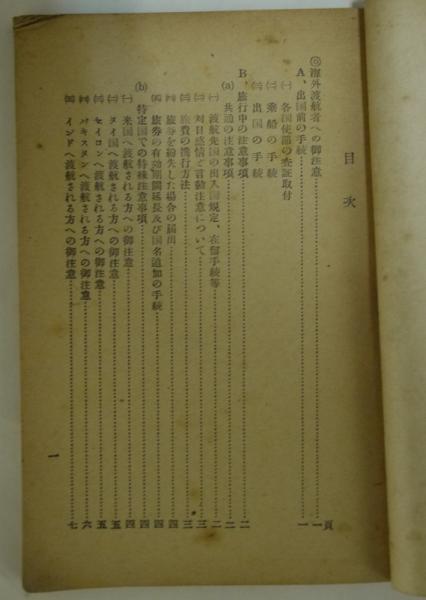 目次
◎海外渡航者への御注意……一頁
A、出国前の手続……一
㈠ 各国使節の査証取付
㈡ 乗船の手続
㈢ 出国の手続
B、旅行中の注意事項……二
(a) 共通の注意事項……二
㈠ 渡航先国の出入国規定、在留手続等……二
㈡ 対日感情と言動注意について……三
㈢ 旅費の携行方法……三
㈣ 旅券を紛失した場合の届出……四
㈤ 旅券の有効期間延長及び国名追加の手続……四
(b) 特定国での特殊注意事項……四
㈠ 米国へ渡航される方への御注意……四
㈡ タイ国へ渡航される方への御注意……五
㈢ セイロンへ渡航される方への御注意……五
㈣ パキスタンへ渡航される方への御注意……六
㈤ インドへ渡航される方への御注意……七
一